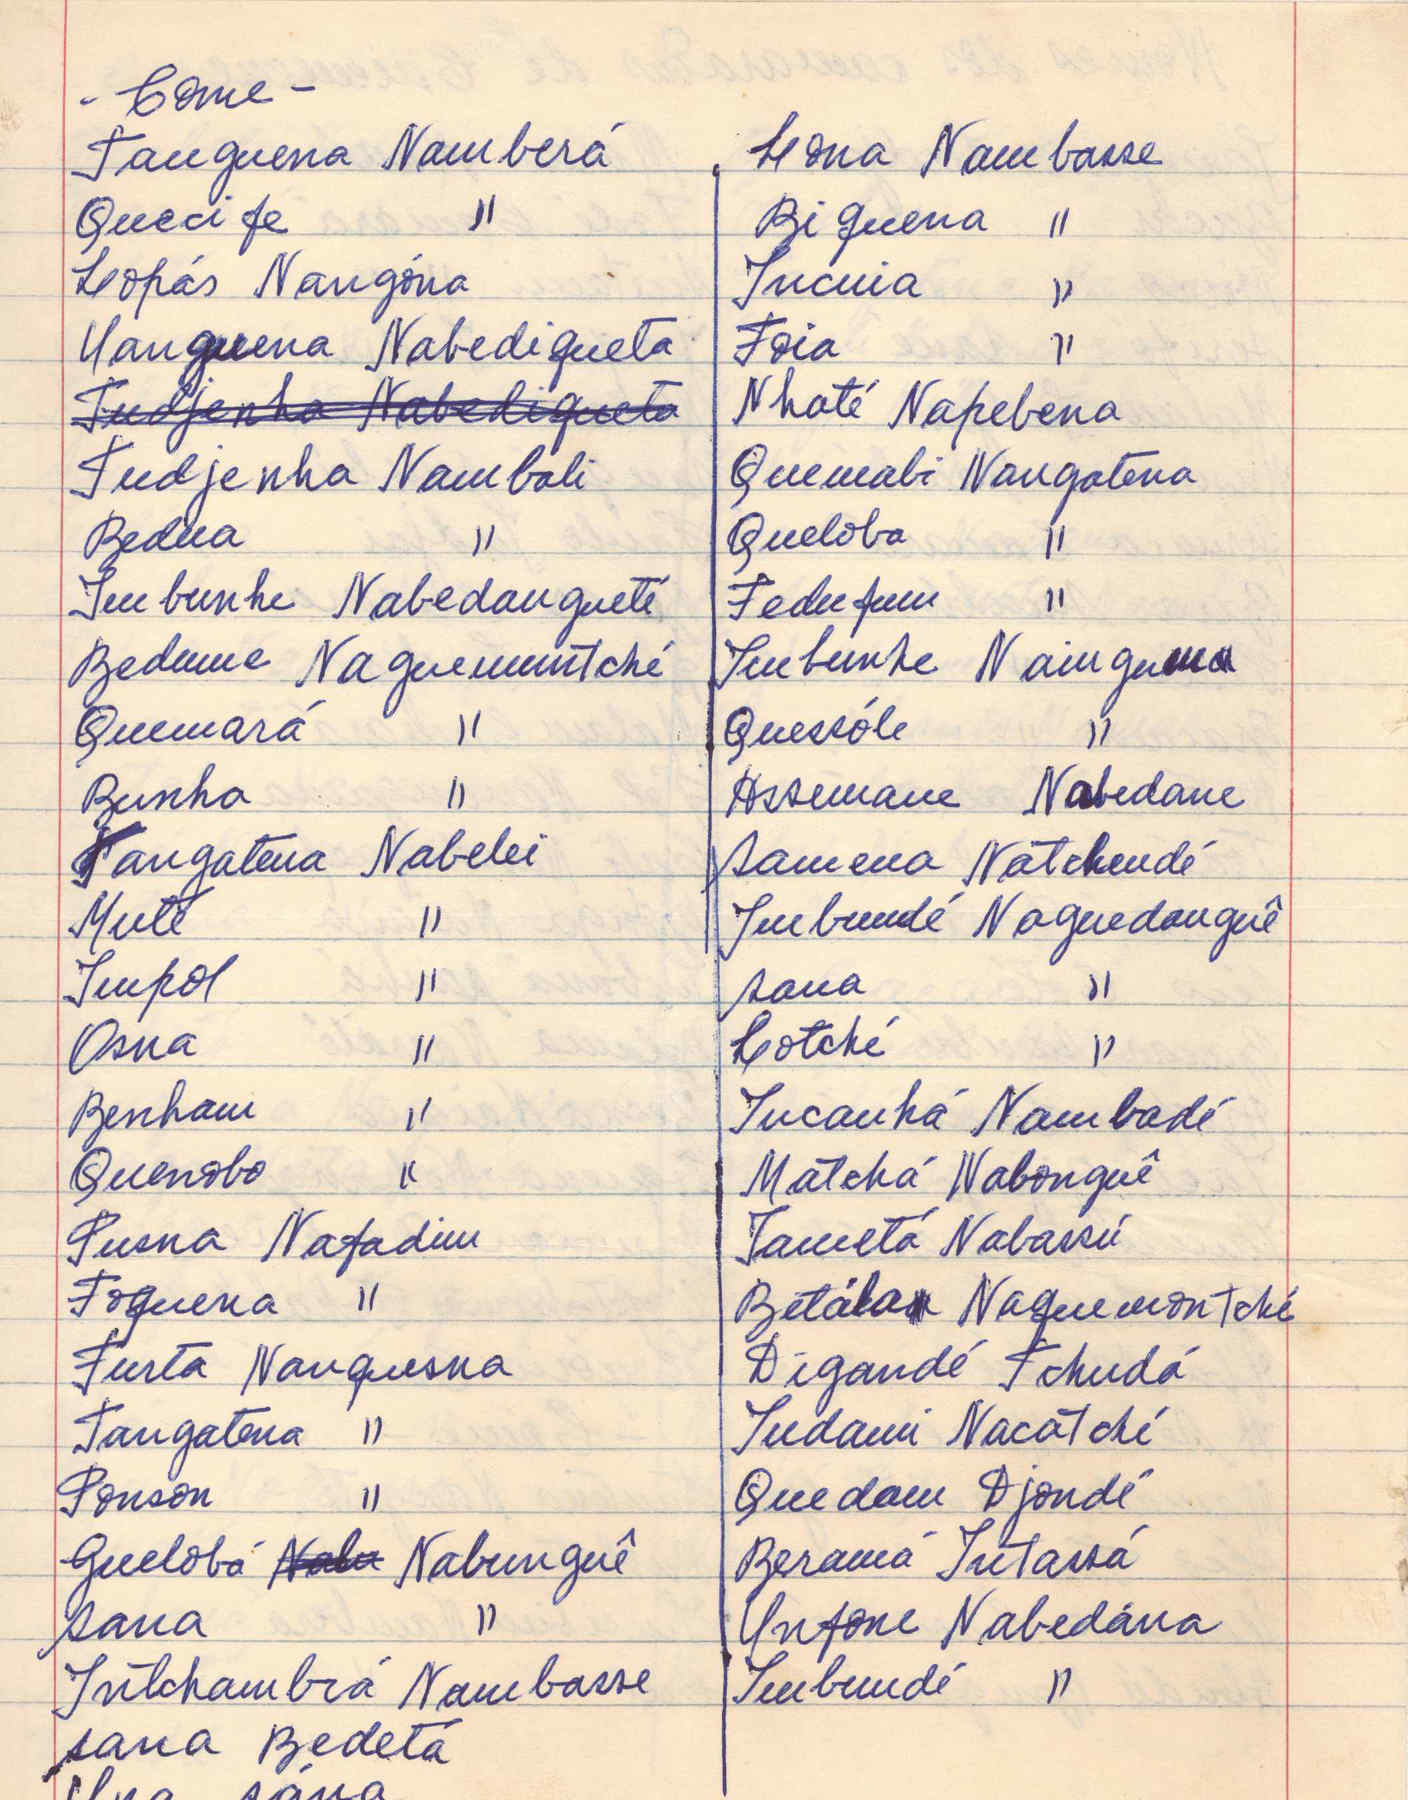 - Come -
Tanguena Namberá
Quecife "
Lopás Nangóna
Uanguena Nabedigueta
Tudjenha Nabedigueta
Tudjenha Namboli
Bedua "
Imbunhe Nabedanguetê
Bedume Naguemuntché
Quemará "
Bunha "
Tangatena Nabelei
Mutê "
Impol "
Osna "
Benham "
Quenobo "
Pusna Nafadim
Foguena "
Furta Nanguesna
Tangatena "
Ponson "
Guelobá Nabunguê
Sana "
Intchambrá Nambasse
Sana Bedetá
Lona Nambasse
Biguena "
Incuia "
Foia "
Nhaté Napebena
Quemabi Nangatena
Queloba "
Fedufum "
Imbunhe Nainguena
Quessóle "
Assemane Nabedane
Samena Natchendé
Imbundé Naguedanguê
Sana "
Lotché "
Incanhá Nambadé
Matchá Nabonguê
Tametá Nabassú
Betála Naguemontché
Digandé Tchudá
Indami Nacatché
Quedam Djondé
Beramá Intassá
Unfone Nabedána
Imbundé "